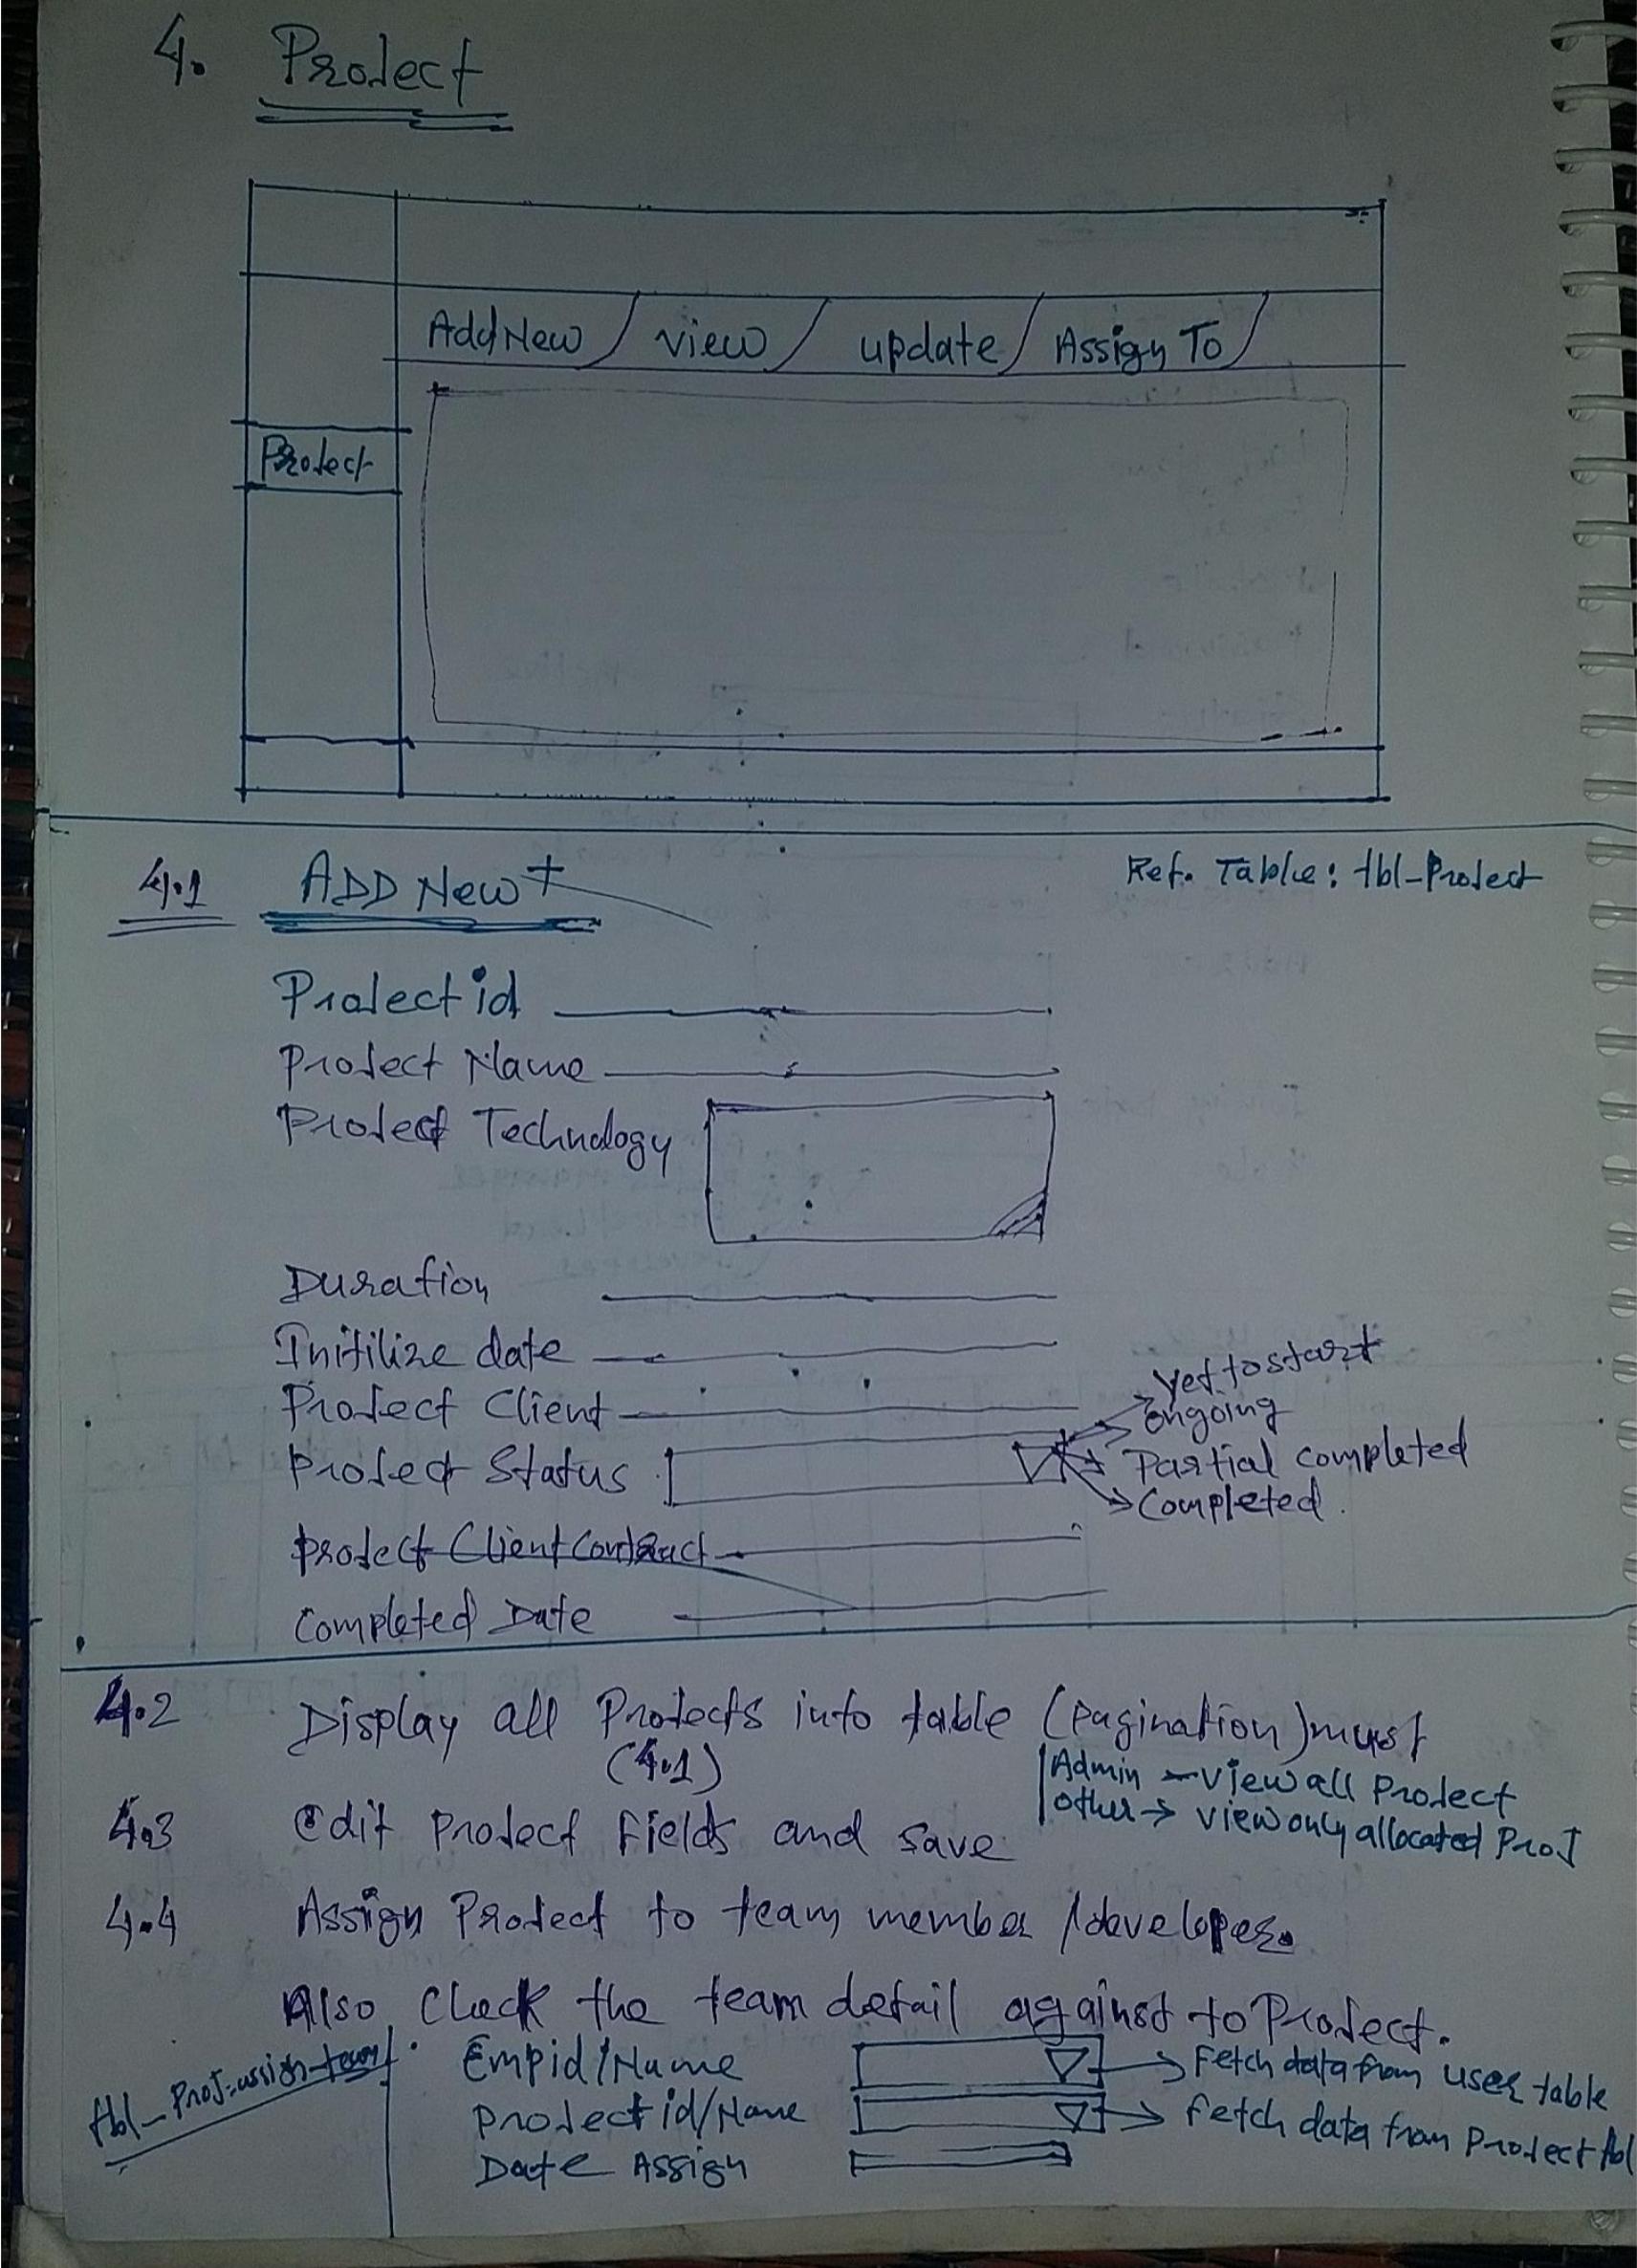 4. Project
Add New / view / update / Assign To /
Project
4.1 ADD New +
Ref. Table: tbl-Project
Project id
Project Name
Project Technology
Duration
Initilize date
Project Client
Project Status
Yet to start
Ongoing
Partial completed
Completed.
Project Client Contract
Completed Date
4.2 Display all Projects into table (pagination) must
(4.1)
Admin - view all Project
other → view only allocated ProJ
4.3 Edit Project fields and save
4.4 Assign Project to team member / developer.
Also check the team detail against to Project.
tbl_ProJ-assign-team
Empid/Name
→ Fetch data from user table
Project id/Name
→ fetch data from Project tbl
Date Assign